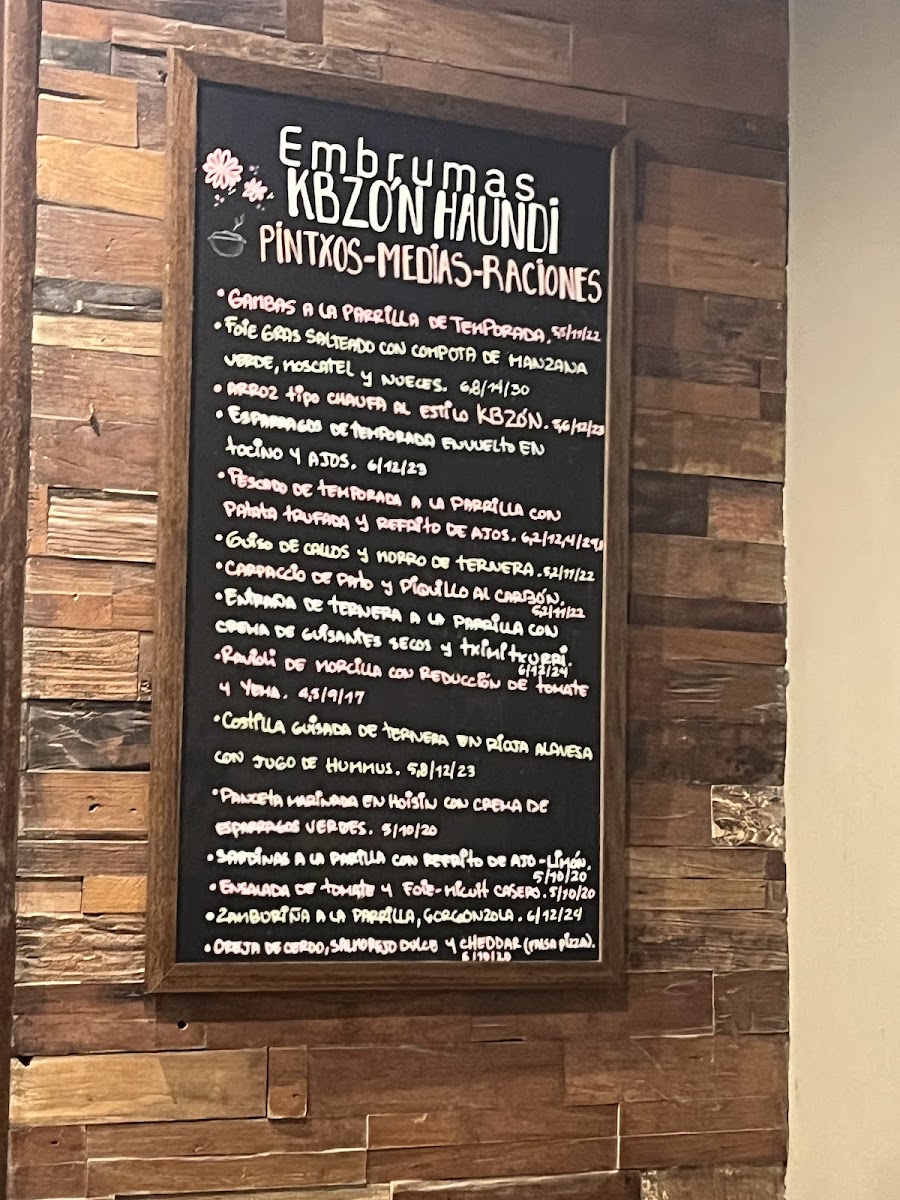 Embrumas
KBZÓN HAUNDI
PINTXOS-MEDIAS-RACIONES
• GAMBAS A LA PARRILLA DE TEMPORADA. 5,5/11/22
• FOIE GRAS SALTEADO CON COMPOTA DE MANZANA
VERDE, MOSCATEL Y NUECES. 6,8/14/30
• ARROZ TIPO CHAUFA AL ESTILO KBZÓN. 5,6/12/23
• ESPARRAGOS DE TEMPORADA ENVUELTO EN
TOCINO Y AJOS. 6/12/23
• PESCADO DE TEMPORADA A LA PARRILLA CON
PATATA TRUFADA Y REFRITO DE AJOS. 6,2/12,4/
• GUISO DE CALLOS Y MORRO DE TERNERA. 5,2/11/22
• CARPACCIO DE PATO Y PIQUILLO AL CARBÓN.
5,2/11/22
• ENTRAÑA DE TERNERA A LA PARRILLA CON
CREMA DE GUISANTES SECOS Y TXIMITXURRI.
6/12/24
• RAVIOLI DE MORCILLA CON REDUCCIÓN DE TOMATE
Y YEMA. 4,5/9/17
• COSTILLA GUISADA DE TERNERA EN RIOJA ALAVESA
CON JUGO DE HUMMUS. 5,8/12/23
• PANCETA MARINADA EN HOISIN CON CREMA DE
ESPARRAGOS VERDES. 5/10/20
• SARDINAS A LA PARILLA CON REFRITO DE AJO-LIMÓN.
5/10/20
• ENSALADA DE TOMATE Y FOIE-MICUIT CASERO. 5/10/20
• ZAMBURIÑA A LA PARRILLA, GORGONZOLA. 6/12/24
• OREJA DE CERDO, SALMOREJO DULCE Y CHEDDAR (FALSA PIZZA).
5/10/20